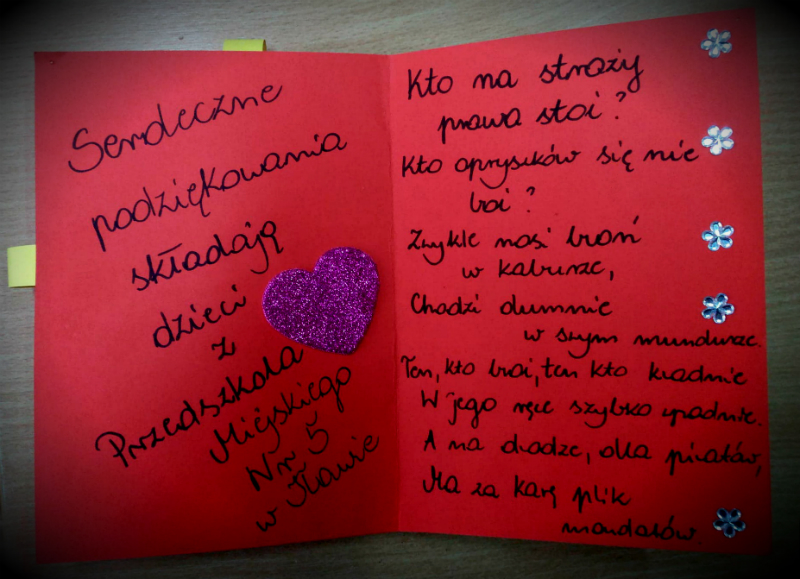 Serdeczne
podziękowania
składają
dzieci
z
Przedszkola
Miejskiego
Nr 5
w Iławie
Kto na straży
prawa stoi?
Kto oprysków się nie
boi?
Zwykle nosi broń
w kaburze,
Chodzi dumnie
w swym mundurze.
Ten, kto broi, ten kto kradnie
W jego ręce szybko wpadnie.
A na drodze, dla piratów,
Ma za karę plik
mandatów.